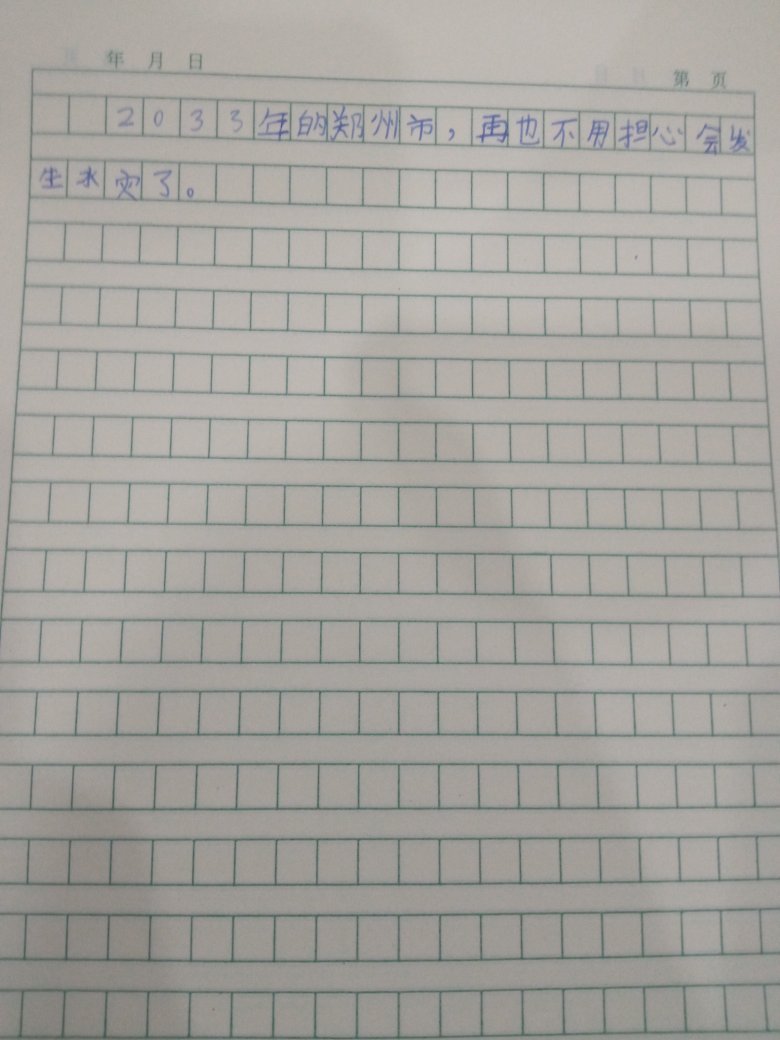 年 月 日
第 页
2033年的郑州市，再也不用担心会发
生水灾了。